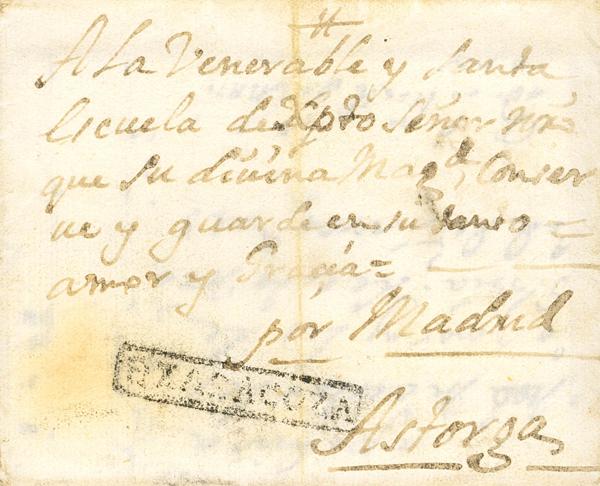 A La Venerable y Santa
Escuela de Xpto Señor Nrõ
que su divina Magd, Conser
ve y guarde en su santo
amor y Gracia=
por Madrid
ZARAGOZA
Astorga